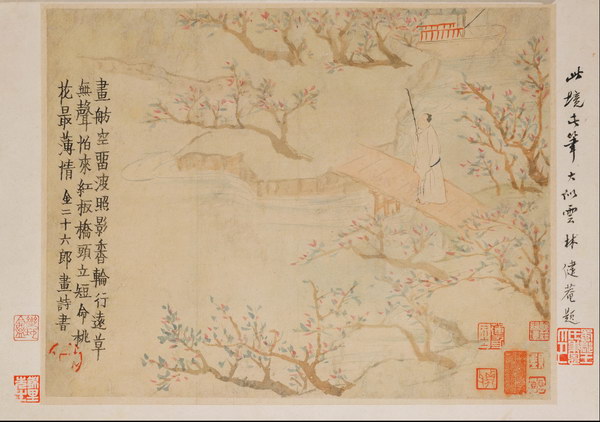 此境此筆大似雲林健菴題
畫舫空留波照影香輪行遠草
無聲怕來紅板橋頭立短命桃
花最薄情 金二十六郎畫詩書